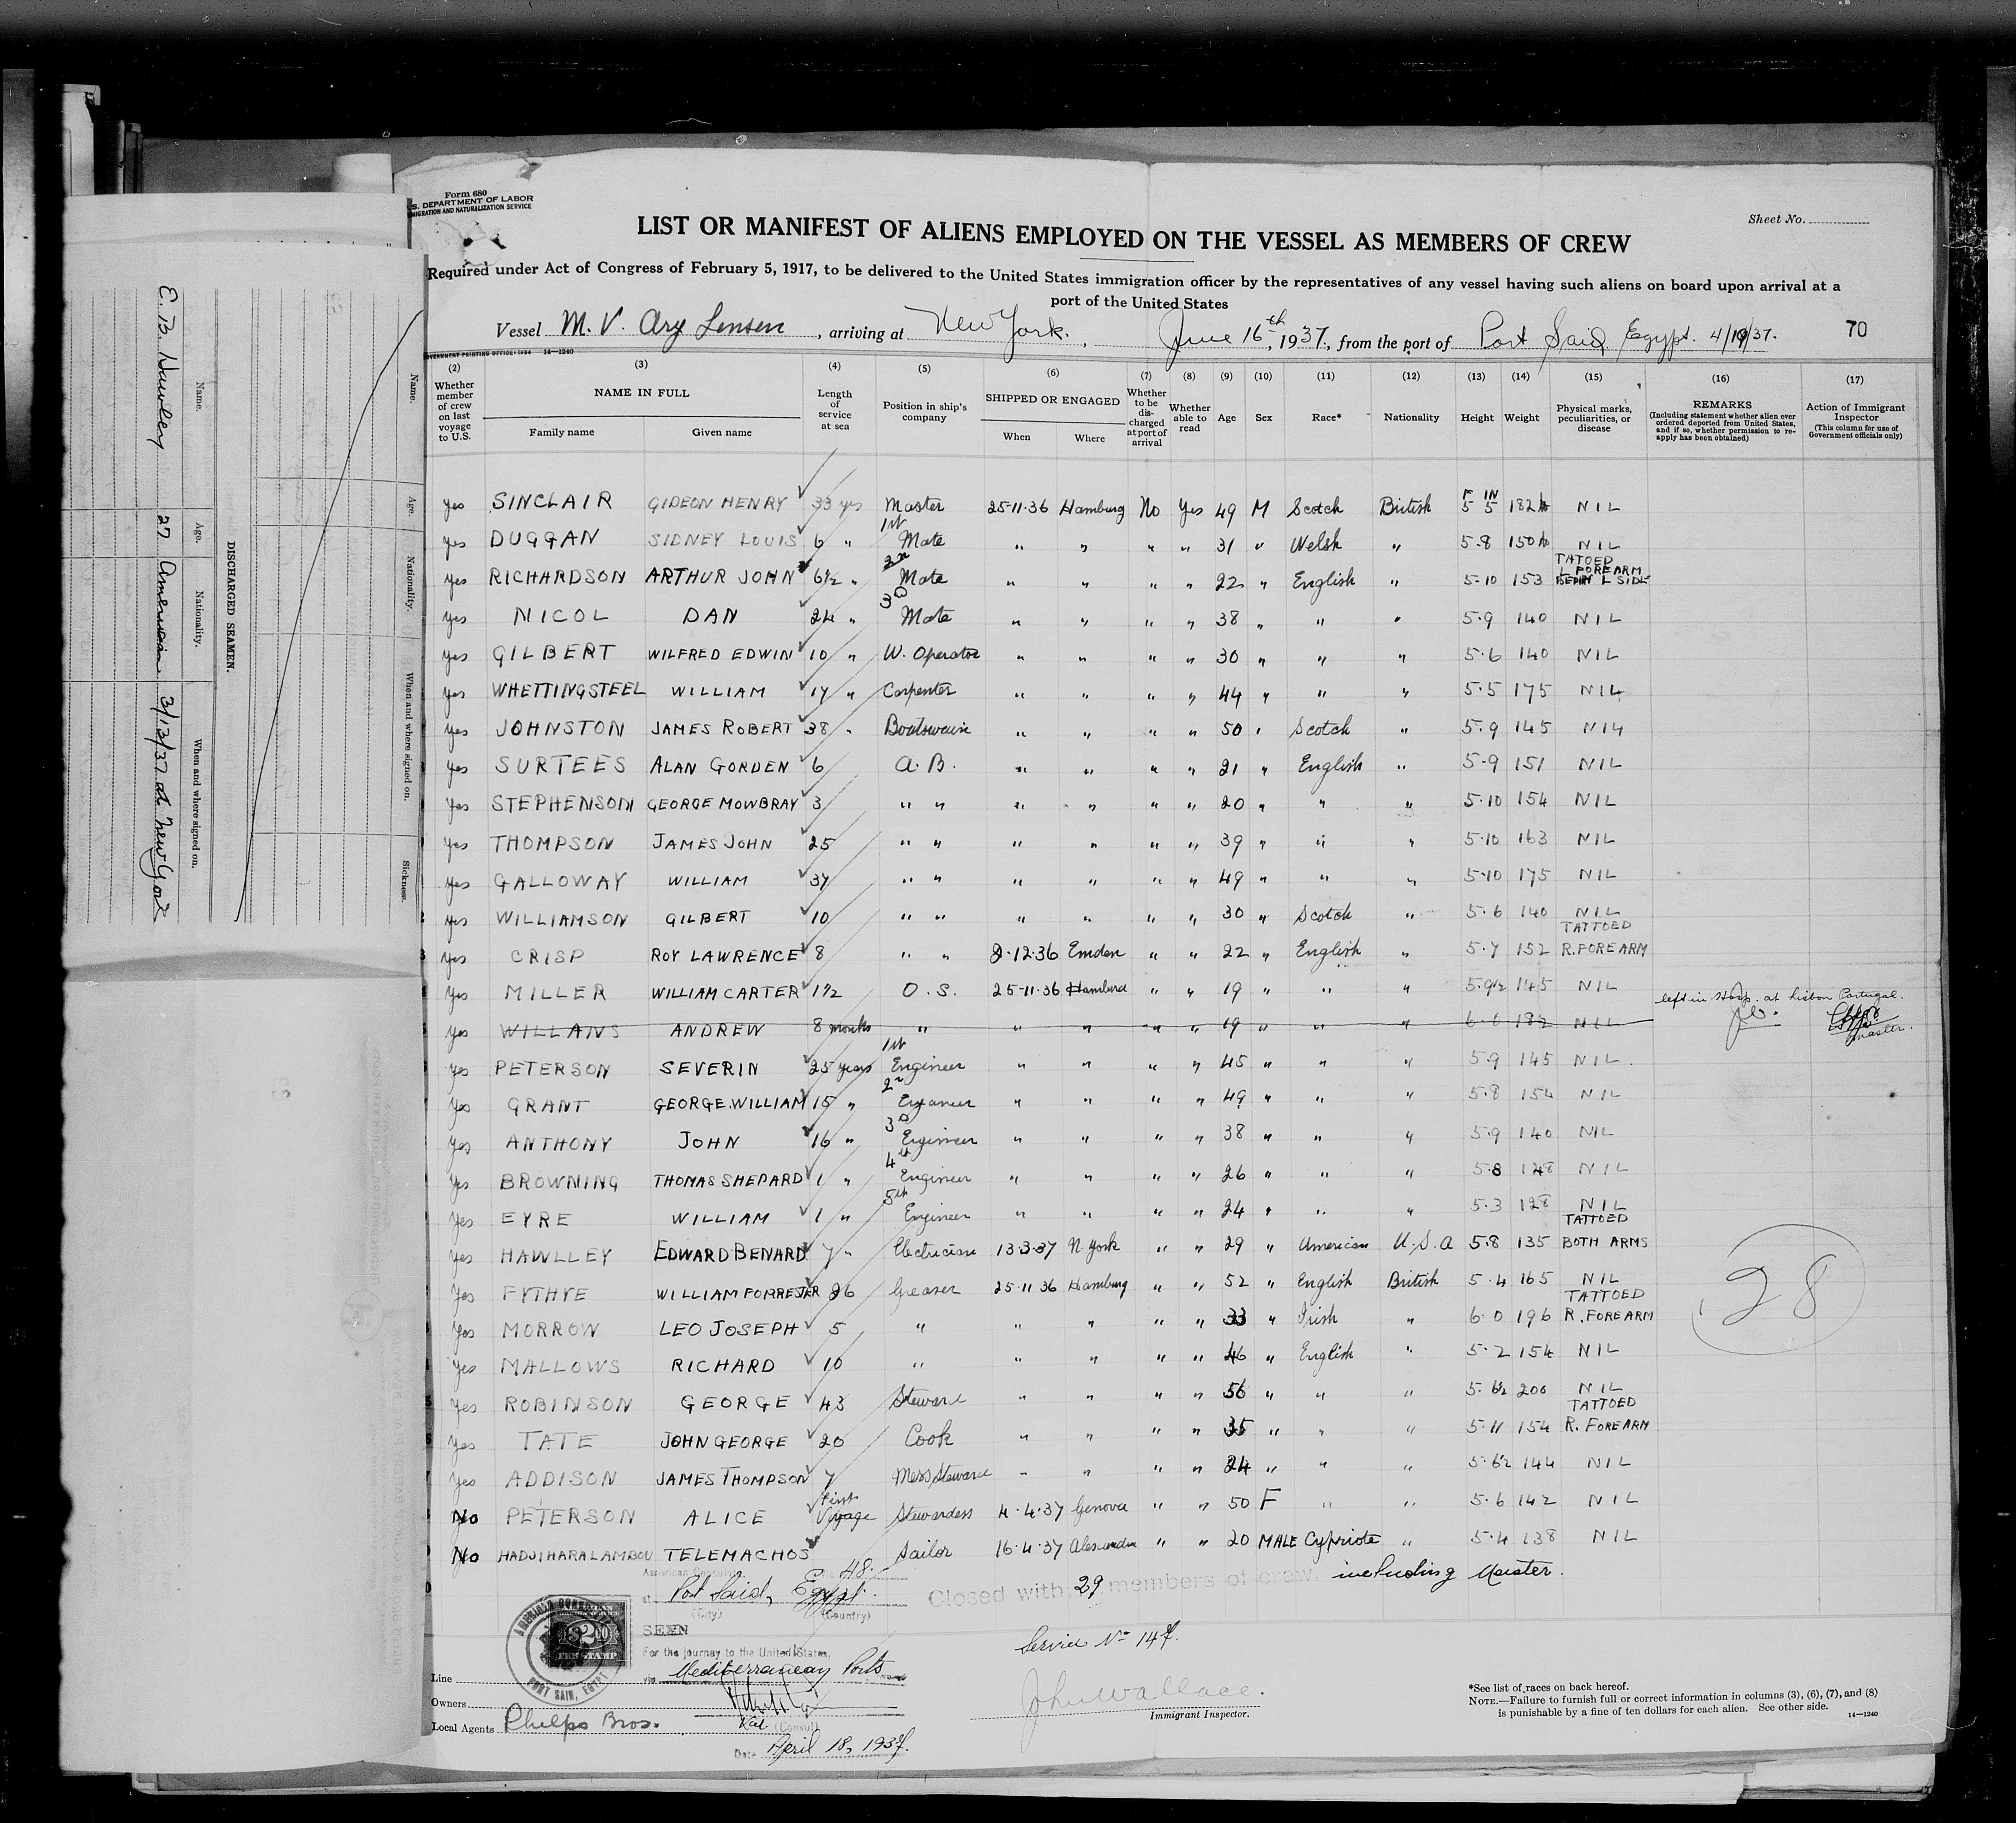 Form 680
U.S. DEPARTMENT OF LABOR
IMMIGRATION AND NATURALIZATION SERVICE
Sheet No.
LIST OR MANIFEST OF ALIENS EMPLOYED ON THE VESSEL AS MEMBERS OF CREW
Required under Act of Congress of February 5, 1917, to be delivered to the United States immigration officer by the representatives of any vessel having such aliens on board upon arrival at a
port of the United States
Vessel M.V. Ary Lensen, arriving at New York, June 16th, 1937, from the port of Port Said Egypt. 4/19/37. 70
GOVERNMENT PRINTING OFFICE: 1934 14—1240
(2) (3) (4) (5) (6) (7) (8) (9) (10) (11) (12) (13) (14) (15) (16) (17)
Whether member of crew on last voyage to U.S. NAME IN FULL Family name Given name Length of service at sea Position in ship's company SHIPPED OR ENGAGED When Where Whether to be discharged at port of arrival Whether able to read Age Sex Race* Nationality Height Weight Physical marks, peculiarities, or disease REMARKS (Including statement whether alien ever ordered deported from United States, and if so, whether permission to reapply has been obtained) Action of Immigrant Inspector (This column for use of Government officials only)
Yes SINCLAIR GIDEON HENRY 33 yrs Master 25-11-36 Hamburg No Yes 49 M Scotch British F 5 IN 5 182 lb NIL
Yes DUGGAN SIDNEY LOUIS 6 " 1st Mate " " " " 31 " Welsh " 5.8 150 lb NIL
Yes RICHARDSON ARTHUR JOHN 6½ " 2nd Mate " " " " 22 " English " 5-10 153 TATOED L FOREARM L SIDE
Yes NICOL DAN 24 " 3D Mate " " " " 38 " " " 5.9 140 NIL
Yes GILBERT WILFRED EDWIN 10 " W. Operator " " " " 30 " " " 5.6 140 NIL
Yes WHETTINGSTEEL WILLIAM 17 " Carpenter " " " " 44 " " " 5.5 175 NIL
Yes JOHNSTON JAMES ROBERT 38 " Boatswain " " " " 50 " Scotch " 5.9 145 NIL
Yes SURTEES ALAN GORDEN 6 A.B. " " " " 21 " English " 5.9 151 NIL
Yes STEPHENSON GEORGE MOWBRAY 3 " " " " " " 20 " " " 5.10 154 NIL
Yes THOMPSON JAMES JOHN 25 " " " " " " 39 " " " 5.10 163 NIL
Yes GALLOWAY WILLIAM 37 " " " " " " 49 " " " 5.10 175 NIL
Yes WILLIAMSON GILBERT 10 " " " " " " 30 " Scotch " 5.6 140 NIL
Yes CRISP ROY LAWRENCE 8 " " 2.12.36 Emden " " 22 " English " 5.7 152 TATTOED R. FOREARM
Yes MILLER WILLIAM CARTER 1½ O.S. 25-11-36 Hamburg " " 19 " " " 5.9½ 145 NIL
Yes WILLANS ANDREW 8 months " " " " " 19 " " " 6.6 182 NIL left in Hosp. at Lisbon Portugal. Master.
Yes PETERSON SEVERIN 25 years 1st Engineer " " " " 45 " " " 5.9 145 NIL
Yes GRANT GEORGE.WILLIAM 15 " 2nd Engineer " " " " 49 " " " 5.8 154 NIL
Yes ANTHONY JOHN 16 " 3D Engineer " " " " 38 " " " 5.9 140 NIL
Yes BROWNING THOMAS SHEPARD 1 " 4th Engineer " " " " 26 " " " 5.8 128 NIL
Yes EYRE WILLIAM 1 " 5th Engineer " " " " 24 " " " 5.3 128 NIL
Yes HAWLLEY EDWARD BENARD 7 " Electrician 13.3.37 N. York " " 29 " American U.S.A 5.8 135 TATTOED BOTH ARMS
Yes FYTHYE WILLIAM FORRESTER 26 Greaser 25.11 36 Hamburg " " 52 " English British 5.4 165 NIL
Yes MORROW LEO JOSEPH 5 " " " " " 33 " Irish " 6.0 196 TATTOED R. FOREARM
28
Yes MALLOWS RICHARD 10 " " " " " 46 " English " 5.2 154 NIL
Yes ROBINSON GEORGE 43 Steward " " " " 56 " " " 5.6½ 200 NIL
Yes TATE JOHN GEORGE 20 Cook " " " " 35 " " " 5.11 154 TATTOED R. FOREARM
Yes ADDISON JAMES THOMPSON 7 Mess Steward " " " " 24 " " " 5.6½ 144 NIL
No PETERSON ALICE First Voyage Stewardess 4.4.37 Genova " " 50 F " " 5.6 142 NIL
No HADJIHARALAMBOU TELEMACHOS Sailor 16.4.37 Alexandria " " 20 MALE Cypriote " 5.4 138 NIL
American Consulate 48.
at Port Said, Egypt.
(City) (Country)
Closed with 29 members of crew. including Master.
SEEN
For the journey to the United States,
via Mediterranean Ports
Consul
Date April 18, 1937.
AMERICAN CONSULATE
PORT SAID, EGYPT
$2.00
FEE STAMP
Service No 147.
John Wallace.
Immigrant Inspector.
Line
Owners
Local Agents Phelps Bros.
*See list of races on back hereof.
NOTE.—Failure to furnish full or correct information in columns (3), (6), (7), and (8)
is punishable by a fine of ten dollars for each alien. See other side.
14—1240
Name. Age. Nationality. When and where signed on. Sickness.
DISCHARGED SEAMEN.
Name. Age. Nationality. When and where signed on.
E. B. Hawlley 27 American 3/13/37 at New York